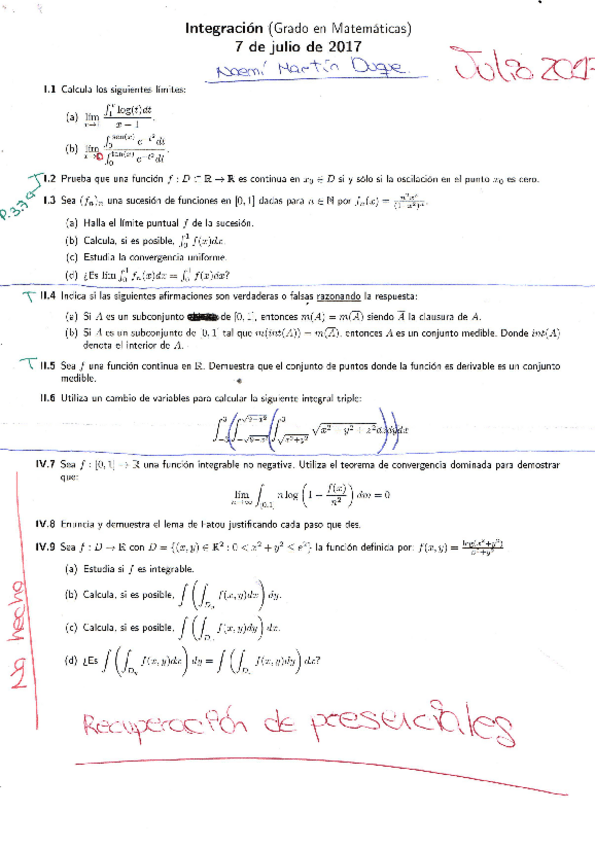 Integración (Grado en Matemáticas)
7 de julio de 2017
Noemí Martín Duque
Julio 2017
I.1 Calcula los siguientes límites:
(a) lím ∫₁ˣ log(t)dt / x − 1.
(b) lím ∫₀^sen(x) e^−t² dt / ∫₀^tan(x) e^−t² dt.
T I.2 Prueba que una función f : D ⊂ ℝ → ℝ es continua en x₀ ∈ D si y sólo si la oscilación en el punto x₀ es cero.
P.3.3
I.3 Sea (fₙ)ₙ una sucesión de funciones en [0, 1] dadas para n ∈ ℕ por fₙ(x) =
(a) Halla el límite puntual f de la sucesión.
(b) Calcula, si es posible, ∫₀¹ f(x)dx.
(c) Estudia la convergencia uniforme.
(d) ¿Es lím ∫₀¹ fₙ(x)dx = ∫₀¹ f(x)dx?
T II.4 Indica si las siguientes afirmaciones son verdaderas o falsas razonando la respuesta:
(a) Si A es un subconjunto de [0, 1], entonces m(A) = m(A̅) siendo A̅ la clausura de A.
(b) Si A es un subconjunto de [0, 1] tal que m(int(A)) = m(A̅), entonces A es un conjunto medible. Donde int(A)
denota el interior de A.
T II.5 Sea f una función continua en ℝ. Demuestra que el conjunto de puntos donde la función es derivable es un conjunto
medible.
II.6 Utiliza un cambio de variables para calcular la siguiente integral triple:
∫₋₃³ ∫₋√(9−x²)^√(9−x²) ∫_√(x²+y²)^3 √(x² + y² + z²) dzdydx
IV.7 Sea f : [0, 1] → ℝ una función integrable no negativa. Utiliza el teorema de convergencia dominada para demostrar
que:
lím n→∞ ∫[0,1] n log (1 − f(x)/n²) dm = 0
IV.8 Enuncia y demuestra el lema de Fatou justificando cada paso que des.
IV.9 Sea f : D → ℝ con D = {(x, y) ∈ ℝ² : 0 < x² + y² ≤ e²} la función definida por: f(x, y) = log(x²+y²) / x²+y²
(a) Estudia si f es integrable.
(b) Calcula, si es posible, ∫ (∫ f(x, y)dx) dy.
(c) Calcula, si es posible, ∫ (∫ f(x, y)dy) dx.
(d) ¿Es ∫ (∫ f(x, y)dx) dy = ∫ (∫ f(x, y)dy) dx?
No hecho
Recuperación de presenciales